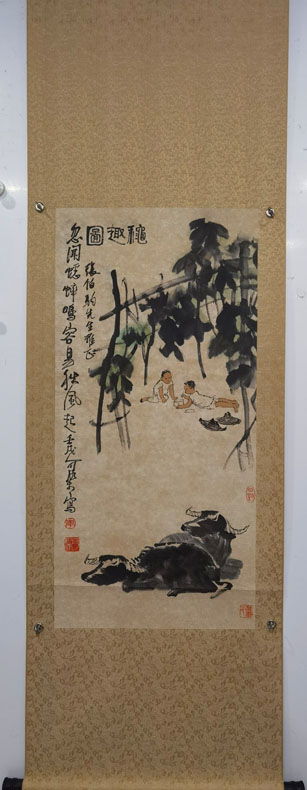 秋趣圖
忽聞蟋蟀鳴容易秋風起壬戌可染寫
張伯駒先生雅正